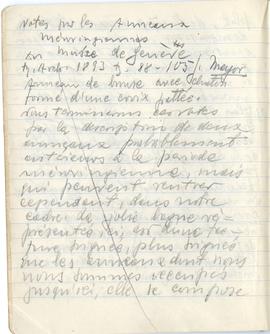 Notes sur les Anneaux
Mérovingiens
du Musée de Genève
R. Arch. 1893 p. 98-105 / Mayor
Anneau de bronze avec chaton
forme d'une croix pattée.
Nous terminons ces notes
par la description de deux
anneaux probablement
antérieurs à la période
mérovingienne, mais
qui peuvent rentrer
cependant, dans notre
cadre. La jolie bague re-
présentée ici, est d'une fac-
ture soignée, plus soignée
que les anneaux dont nous
nous sommes occupés
jusqu'ici, elle se compose